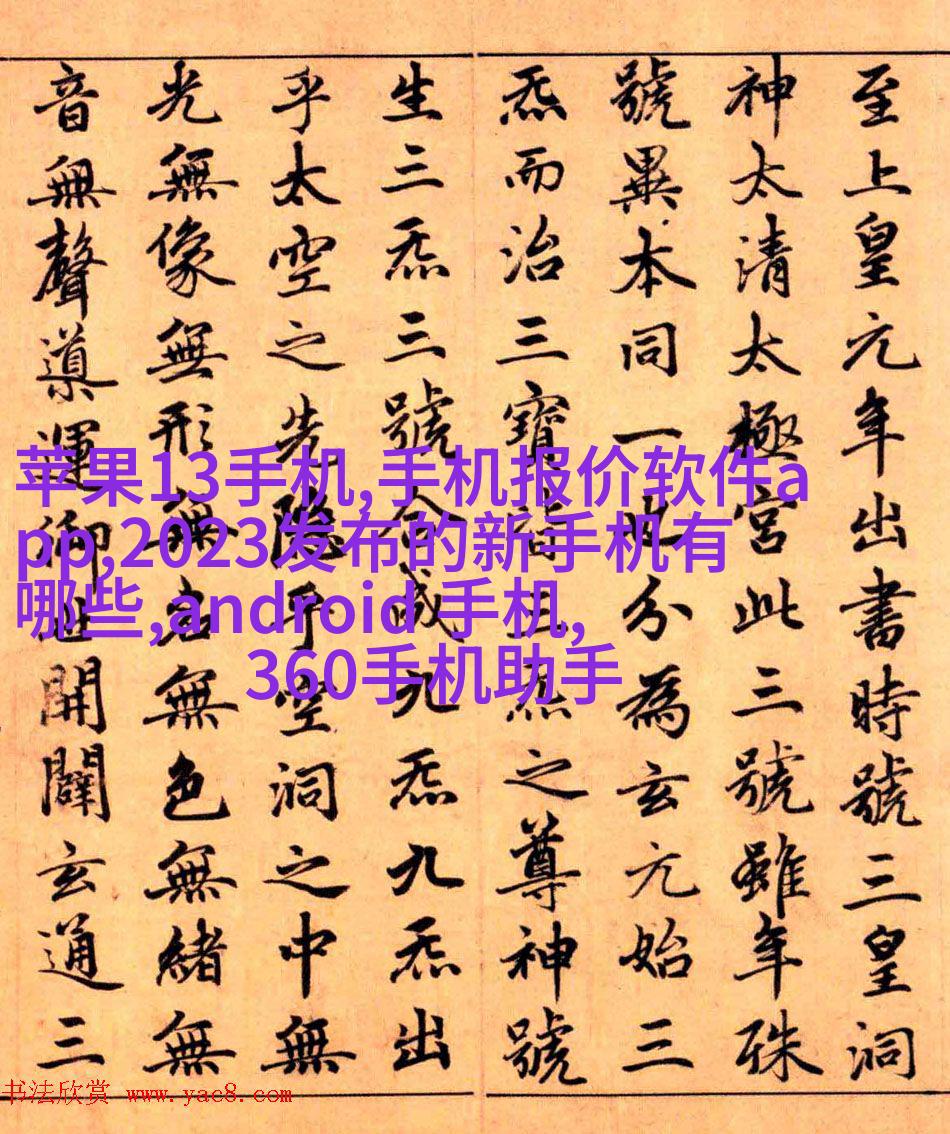 至上皇元年出書時號三皇洞
神太清太極宮此三號雖年殊
號異本同一也分為玄元始三
炁而治三寶皆三炁之尊神號
生三炁三號合成九炁九炁出
乎太空之先隱乎空洞之中無
光無像無形無名無色無緒無
音無聲導運御世開闢玄通三
苹果13手机,手机报价软件a
pp,2023发布的新手机有
哪些,android 手机,
360手机助手
书法欣赏 www.yac8.com